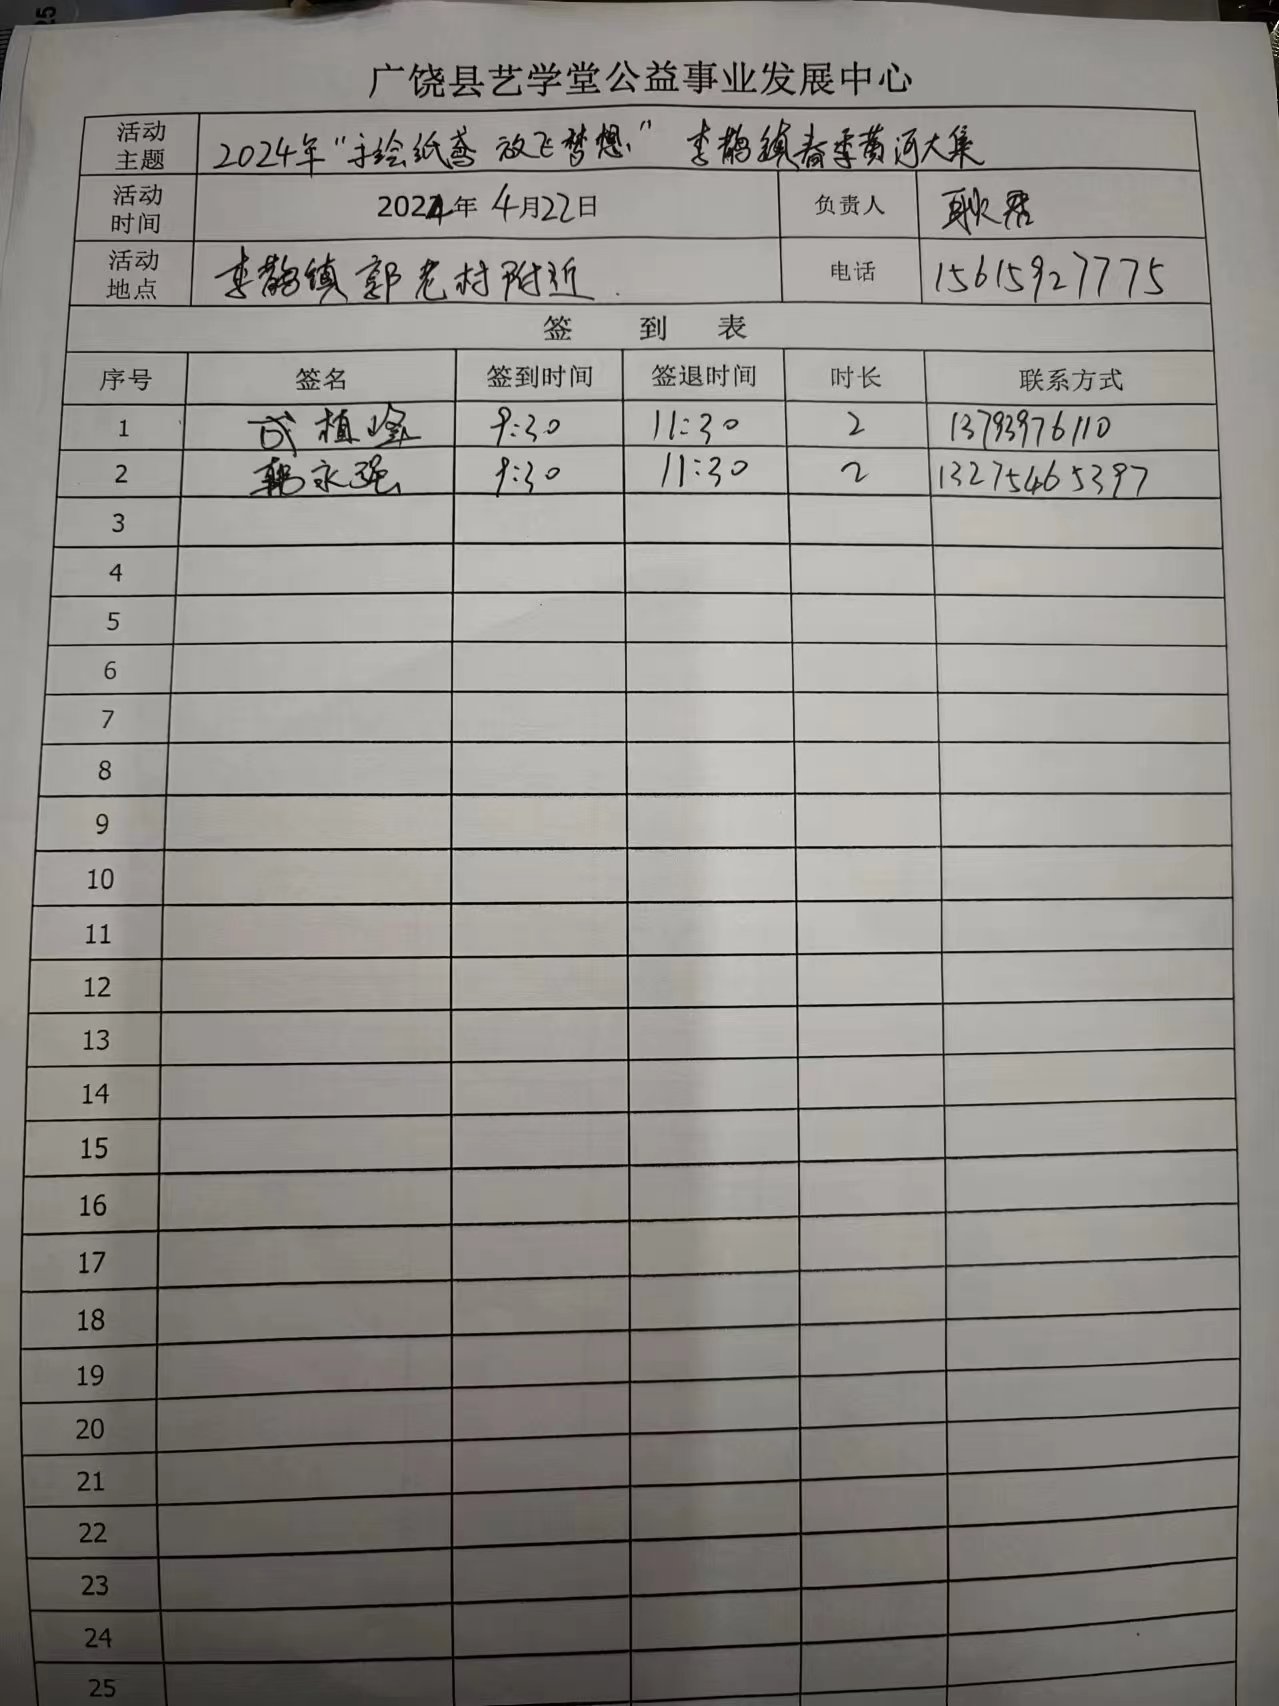 广饶县艺学堂公益事业发展中心
活动主题 2024年"手绘纸鸢 放飞梦想"李鹊镇春季黄河大集
活动时间 2024年 4月22日 负责人 耿
活动地点 李鹊镇郭老村附近. 电话 15615927775
签 到 表
序号 签名 签到时间 签退时间 时长 联系方式
1 成植 9:30 11:30 2 13793976110
2 韩永强 9:30 11:30 2 13275465397
3
4
5
6
7
8
9
10
11
12
13
14
15
16
17
18
19
20
21
22
23
24
25